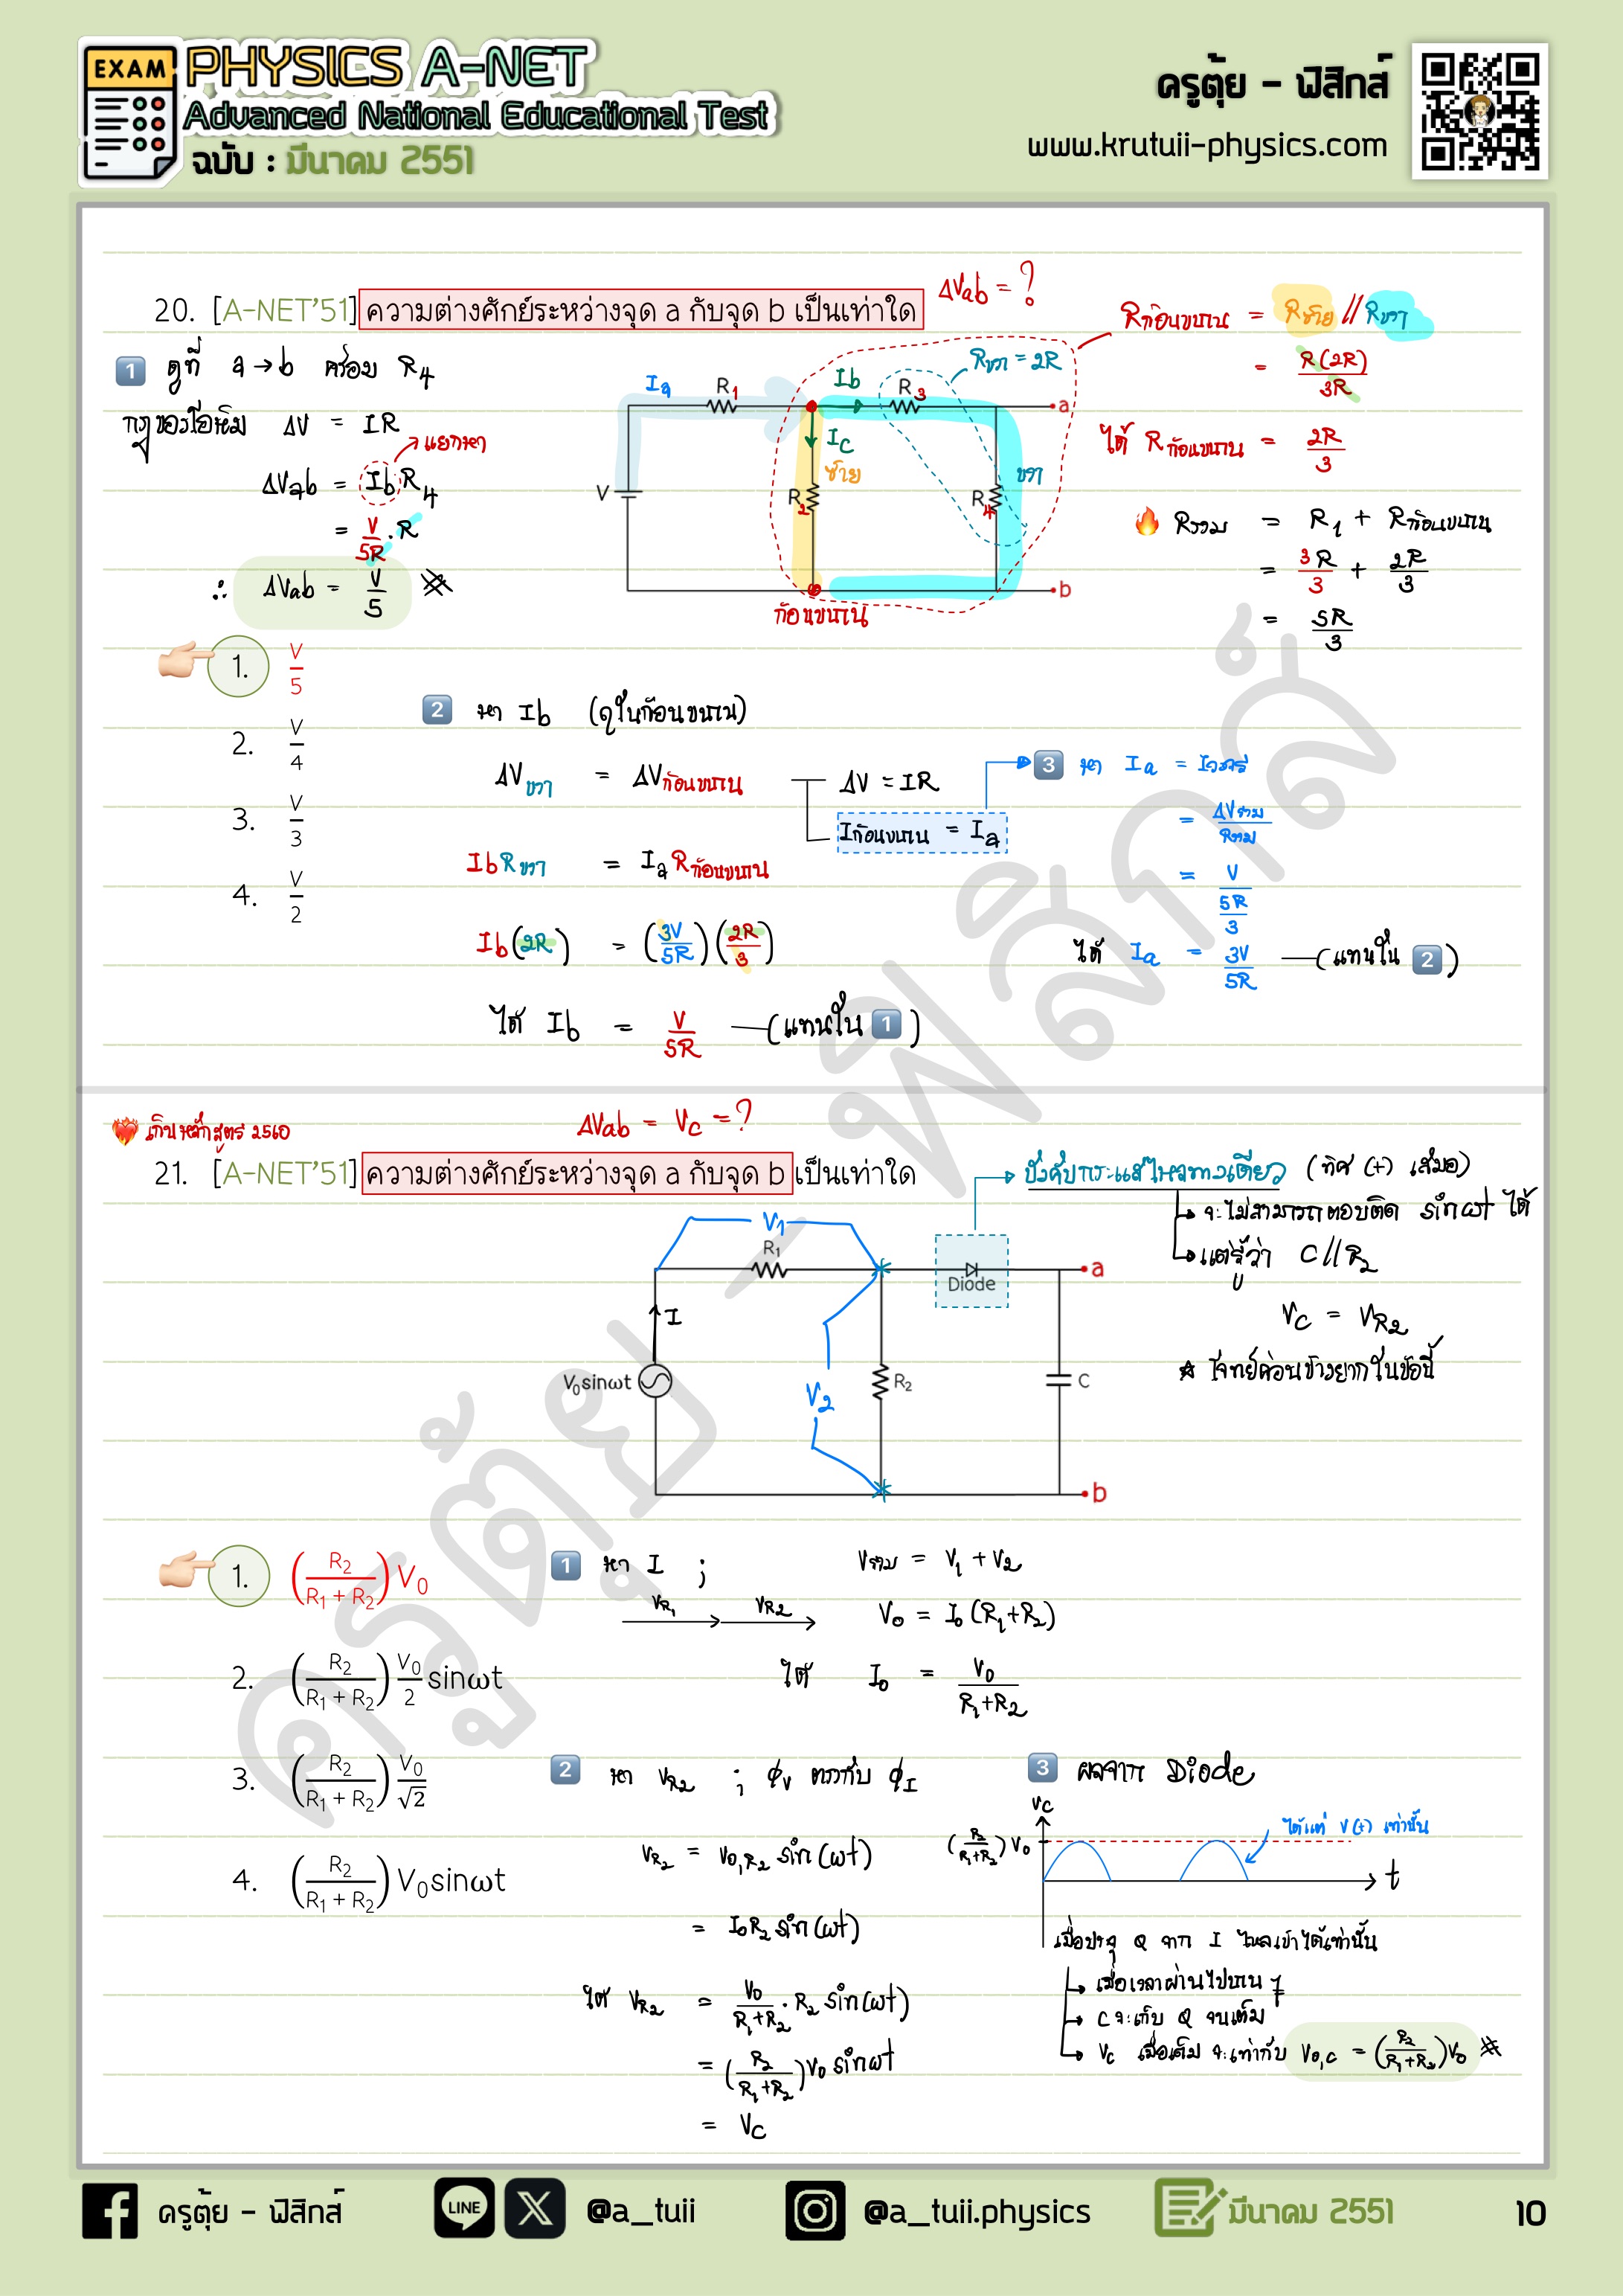 EXAM
PHYSICS A-NET
Advanced National Educational Test
ฉบับ : มีนาคม 2551
ครูตุ้ย - ฟิสิกส์
www.krutuii-physics.com
20. [A-NET'51] ความต่างศักย์ระหว่างจุด a กับจุด b เป็นเท่าใด
ΔVab = ?
1 ดูที่ a → b คร่อม R4
กฎของโอห์ม ΔV = IR
แยกหา
ΔVab = Ib R4
= V/5R · R
∴ ΔVab = V/5
Ia R1 Ib R3 Rขวา = 2R a
Ic
ซ้าย
ขวา
V R2 R4
b
ก้อนขนาน
Rก้อนขนาน = Rซ้าย // Rขวา
= R(2R)/3R
ได้ Rก้อนขนาน = 2R/3
Rรวม = R1 + Rก้อนขนาน
= 3R/3 + 2R/3
= 5R/3
1. V/5
2. V/4
3. V/3
4. V/2
2 หา Ib (ดูในก้อนขนาน)
ΔVขวา = ΔVก้อนขนาน
ΔV = IR
Iก้อนขนาน = Ia
Ib Rขวา = Ia Rก้อนขนาน
Ib(2R) = (3V/5R)(2R/3)
ได้ Ib = V/5R (แทนใน 1)
3 หา Ia = Iวงจร
= ΔVรวม/Rรวม
= V/(5R/3)
ได้ Ia = 3V/5R (แทนใน 2)
เกินหลักสูตร 2560
ΔVab = Vc = ?
21. [A-NET'51] ความต่างศักย์ระหว่างจุด a กับจุด b เป็นเท่าใด
บังคับกระแสไหลทางเดียว (ทิศ (+) เสมอ)
จะไม่สามารถตอบติด sinωt ได้
แต่รู้ว่า C // R2
Vc = VR2
โจทย์ค่อนข้างยากในข้อนี้
V1
R1
Diode
a
I
V0sinωt
V2
R2
C
b
1. (R2/(R1 + R2)) V0
2. (R2/(R1 + R2)) V0/2 sinωt
3. (R2/(R1 + R2)) V0/√2
4. (R2/(R1 + R2)) V0sinωt
1 หา I ; Vรวม = V1 + V2
VR1 VR2 V0 = I0 (R1+R2)
ได้ I0 = V0/(R1+R2)
2 หา VR2 ; ϕV ตรงกับ ϕI
VR2 = V0,R2 sin(ωt)
= I0R2 sin(ωt)
ได้ VR2 = V0/(R1+R2) · R2 sin(ωt)
= (R2/(R1+R2)) V0 sinωt
= Vc
3 ผลจาก Diode
Vc
(R2/(R1+R2)) V0
ได้แต่ V(+) เท่านั้น
t
เมื่อประจุ Q จาก I ไหลเข้าได้เท่านั้น
เมื่อเวลาผ่านไปนาน ๆ
C จะเก็บ Q จนเต็ม
Vc เมื่อเต็ม จะเท่ากับ V0,c = (R2/(R1+R2)) V0
ครูตุ้ย - ฟิสิกส์
ครูตุ้ย - ฟิสิกส์
LINE
@a_tuii
@a_tuii.physics
มีนาคม 2551
10